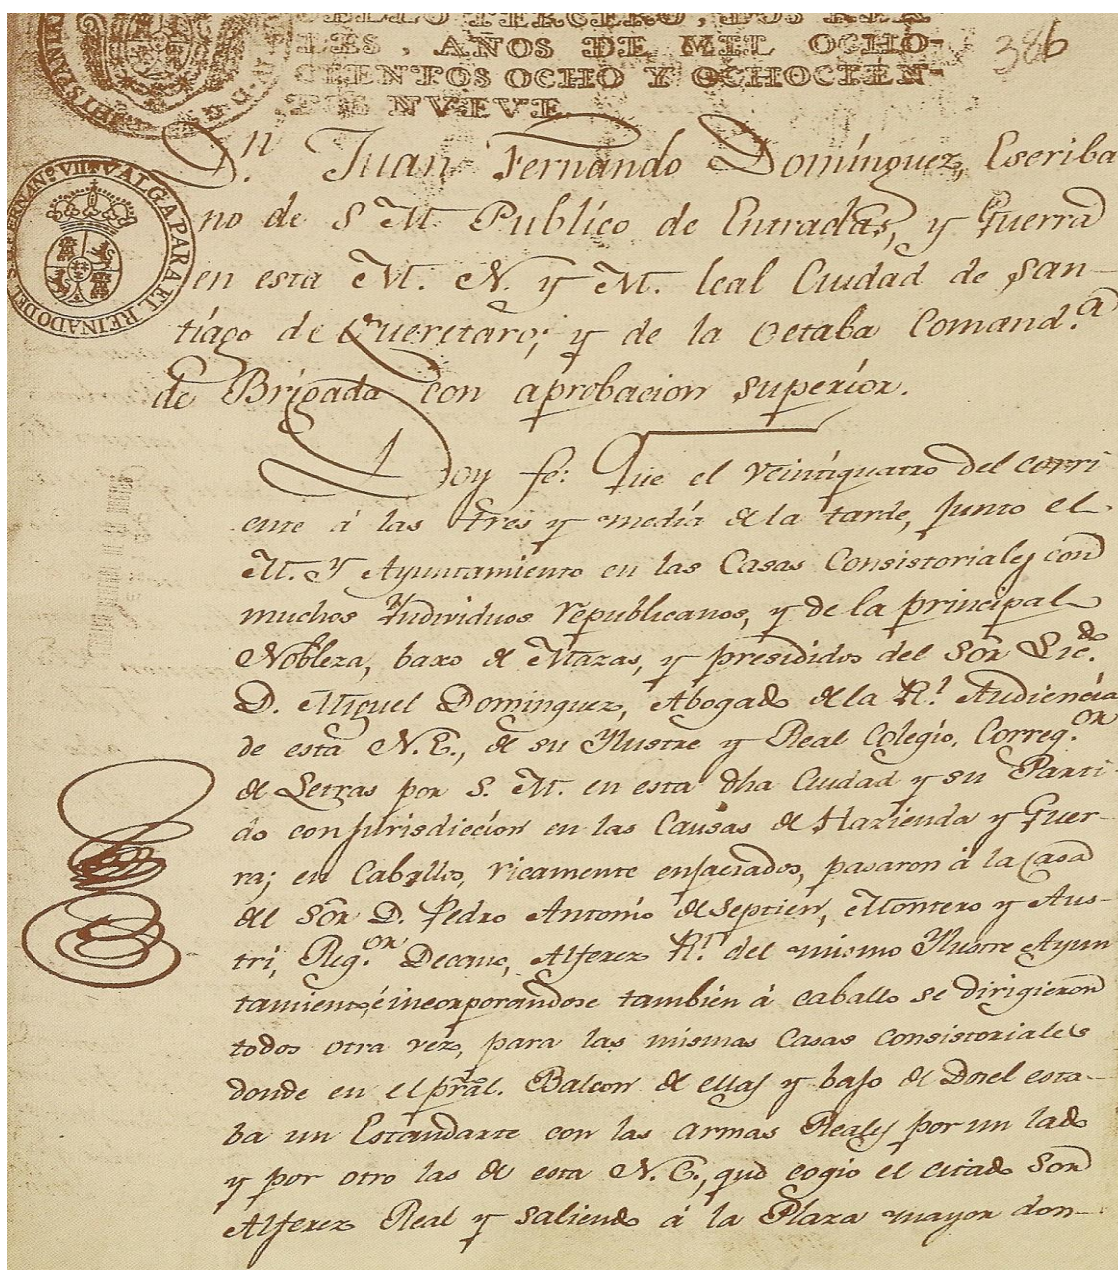 SELLO TERCERO, DOS REA-
LES, AÑOS DE MIL OCHO-
CIENTOS OCHO Y OCHOCIEN-
TOS NVEVE.
386
VALGA PARA EL REINADO DEL S. D. FERNANº VII
Dn. Juan Fernando Domínguez, Escriba
no de S M Publíco de Entradas, y Guerra
en esta M. N. y M. leal Ciudad de San-
tíago de Queretaro; y de la Octaba Comand.a
de Brígada con aprobacion superíor.
Doy fe: Que el veintíquatro del corri
ente á las tres y medía de la tarde, junto el
M. Y Ayuntamiento en las Casas Consistoriales con
muchos Yndividuos republicanos, y de la principal
Nobleza, baxo de Mazas, y presididos del Sor Lic.do
D. Miguel Dominguez, Abogado de la Rl. Audiencia
de esta N. E., de su Ylustre y Real Colegio, Correg.or
de Letras por S. M. en esta dha Ciudad y su Parti
do con jurisdiccion en las Causas de Hazienda y Guer-
ra; en Caballos, ricamente enjaezados, pasaron á la Casa
del Sor D. Pedro Antonío de Septien, Montero y Aus-
tri, Reg.or Decano, Alferez Rl. del mismo Ylustre Ayun
tamiento, é incorporandose también á caballo se dirigieron
todos otra vez, para las mismas Casas Consistoriales
donde en el pral. Balcon de ellas y bajo de Dosel esta-
ba un Estandarte con las armas Reales por un lado
y por otro las de esta N. C., que cogio el citado Sor
Alferez Real y saliendo á la Plaza mayor don-